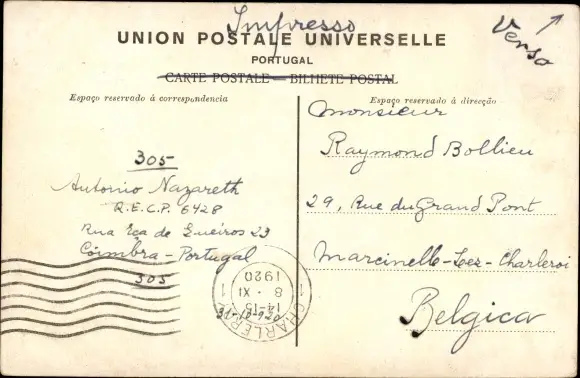 Impresso
Verso
UNION POSTALE UNIVERSELLE
PORTUGAL
CARTE POSTALE — BILHETE POSTAL
Espaço reservado á correspondencia
Espaço reservado á direcção
305
Antonio Nazareth
R.E.C.P. 6428
Rua Eça de Queiros 23
Cóimbra - Portugal
305
31-10-920
Monsieur
Raymond Bollieu
29, Rue du Grand Pont
Marcinelle-Lez-Charleroi
Belgica
1 CHARLEROI 1
14-15
8 · XI
1920